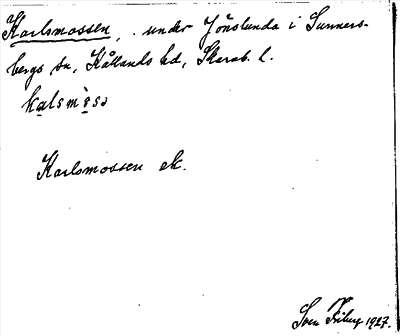 Karlsmossen, under Jönslunda i Sunners-
bergs sn, Kållands hd, Skarab. l.
kalsmòsa
Karlsmossen ek.
Sven Friberg 1927.